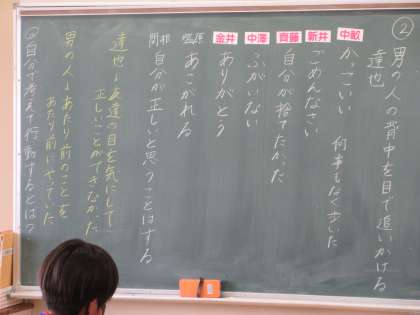 ②男の人の背中を目で追いかける
達也
中畝 かっこいい 何事もなく歩いた
新井 ごめんなさい
齊藤 自分が捨てたかった
中澤 ふがいない
金井 ありがとう
塩原 あこがれる
関邦 自分が正しいと思うことはする
達也→友達の目を気にして
正しいことができなかった
男の人→あたり前のことを
あたり前にやっていた
自分で考えて行動するとは